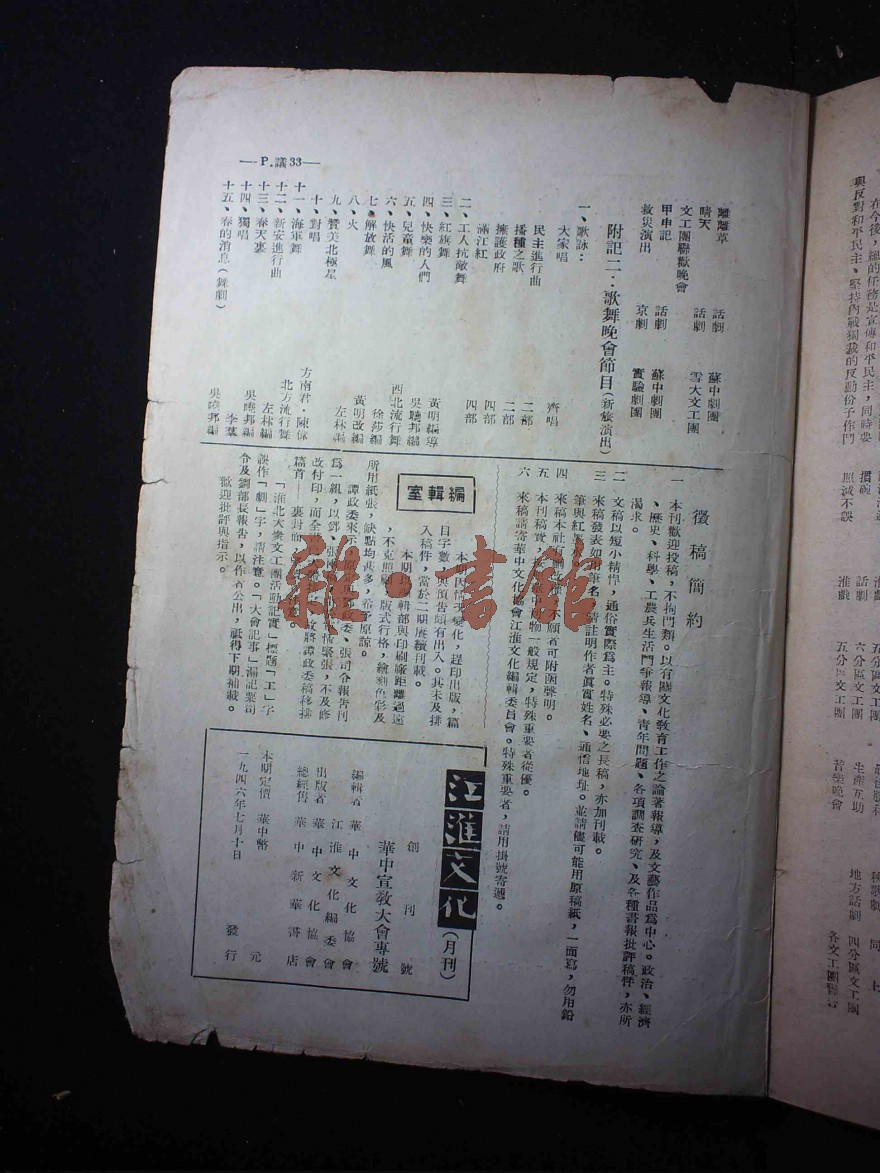 —P.議33—
離離草 話劇 蘇中劇團
晴天 話劇 雪大文工團
文工團聯歡晚會
甲申記 話劇 蘇中劇團
救災演出 京劇 實驗劇團
附記二：歌舞晚會節目(新旅演出)
一、歌詠：
大家唱 齊唱
民主進行曲 二部
播種之歌 二部
擁護政府 四部
滿江紅 四部
二、工人抗敵舞 黃明編導
三、紅旗舞 吳曉邦編
四、快樂的人們 西北流行舞
五、兒童舞 徐莎編
六、快活的風 黃明改編
七、解放舞 左林編
八、火
九、贊美北極星
十、對唱 方南君・陳
十一、海軍舞 北方流行舞
十二、新安進行曲 左林編
十三、春天裏 吳曉邦編
十四、獨唱 李
十五、春的消息(舞劇) 吳曉邦編
徵稿簡約
一 本刊歡迎投稿，不拘門類。以有關文化教育工作之論著報導，及文藝作品爲中心。政治、經濟
、歷史、科學、工農兵生活鬥爭報導、青年問題、各項調查研究、及各種書報批評稿件，亦所
渴求。
二 文稿以短小精悍，通俗實際爲主。特殊必要之長稿，亦加刊載。
三 來稿發表如用筆名，請註明作者眞實姓名、通信地址。並請儘可能用原稿紙，一面寫，勿用鉛
筆與紅墨
四 來稿本社有 不願者可附函聲明。
五 本刊稿實， 物一般規定，特殊重要者從優。
六 來稿請寄華中文化協會江淮文化編輯委員會。特殊重要者，請用掛號寄遞。
編輯室
本 因情況變化，趕印出版，篇
目字數 與預告頗有出入。其未及排
入稿件，當於二期賡續刊載。
本期 輯部與印刷廠距離過遠
，不克照顧 版式行格，繪刻色彩及
所用紙張，缺點均甚多，希予原諒。
譚政委來示 政委、張司令報告刊
爲一組，以鄧、張 情緊張，不及修
改付印，而全 故將譚政委稿移排
篇首——裏封面
「淮北大衆文工團活動記實」標題「工」字
誤作「劇」字，請注意。「大會記事」漏記粟司
令及劉部長報告，以作者公出，祗得下期補載。
歡迎批評與指示。
江淮文化(月刊)
創刊號
華中宣敎大會專號
編輯者 華中文化協會
江淮文化編委會
出版者 華中文化協會
總經售 華中新華書店
本期定價 華中幣 元
一九四六年七月十日 發行
雜·書館
在今後，組的任務是宣傳和平民主，同時要
與反對和平民主、堅持內戰獨裁的反動份子作鬥
照滅不誤 淮戲 五分區文工團 生產互助
六分區文工團
五分區文工團 音樂晚會
地方話劇 四分區文工團
同上